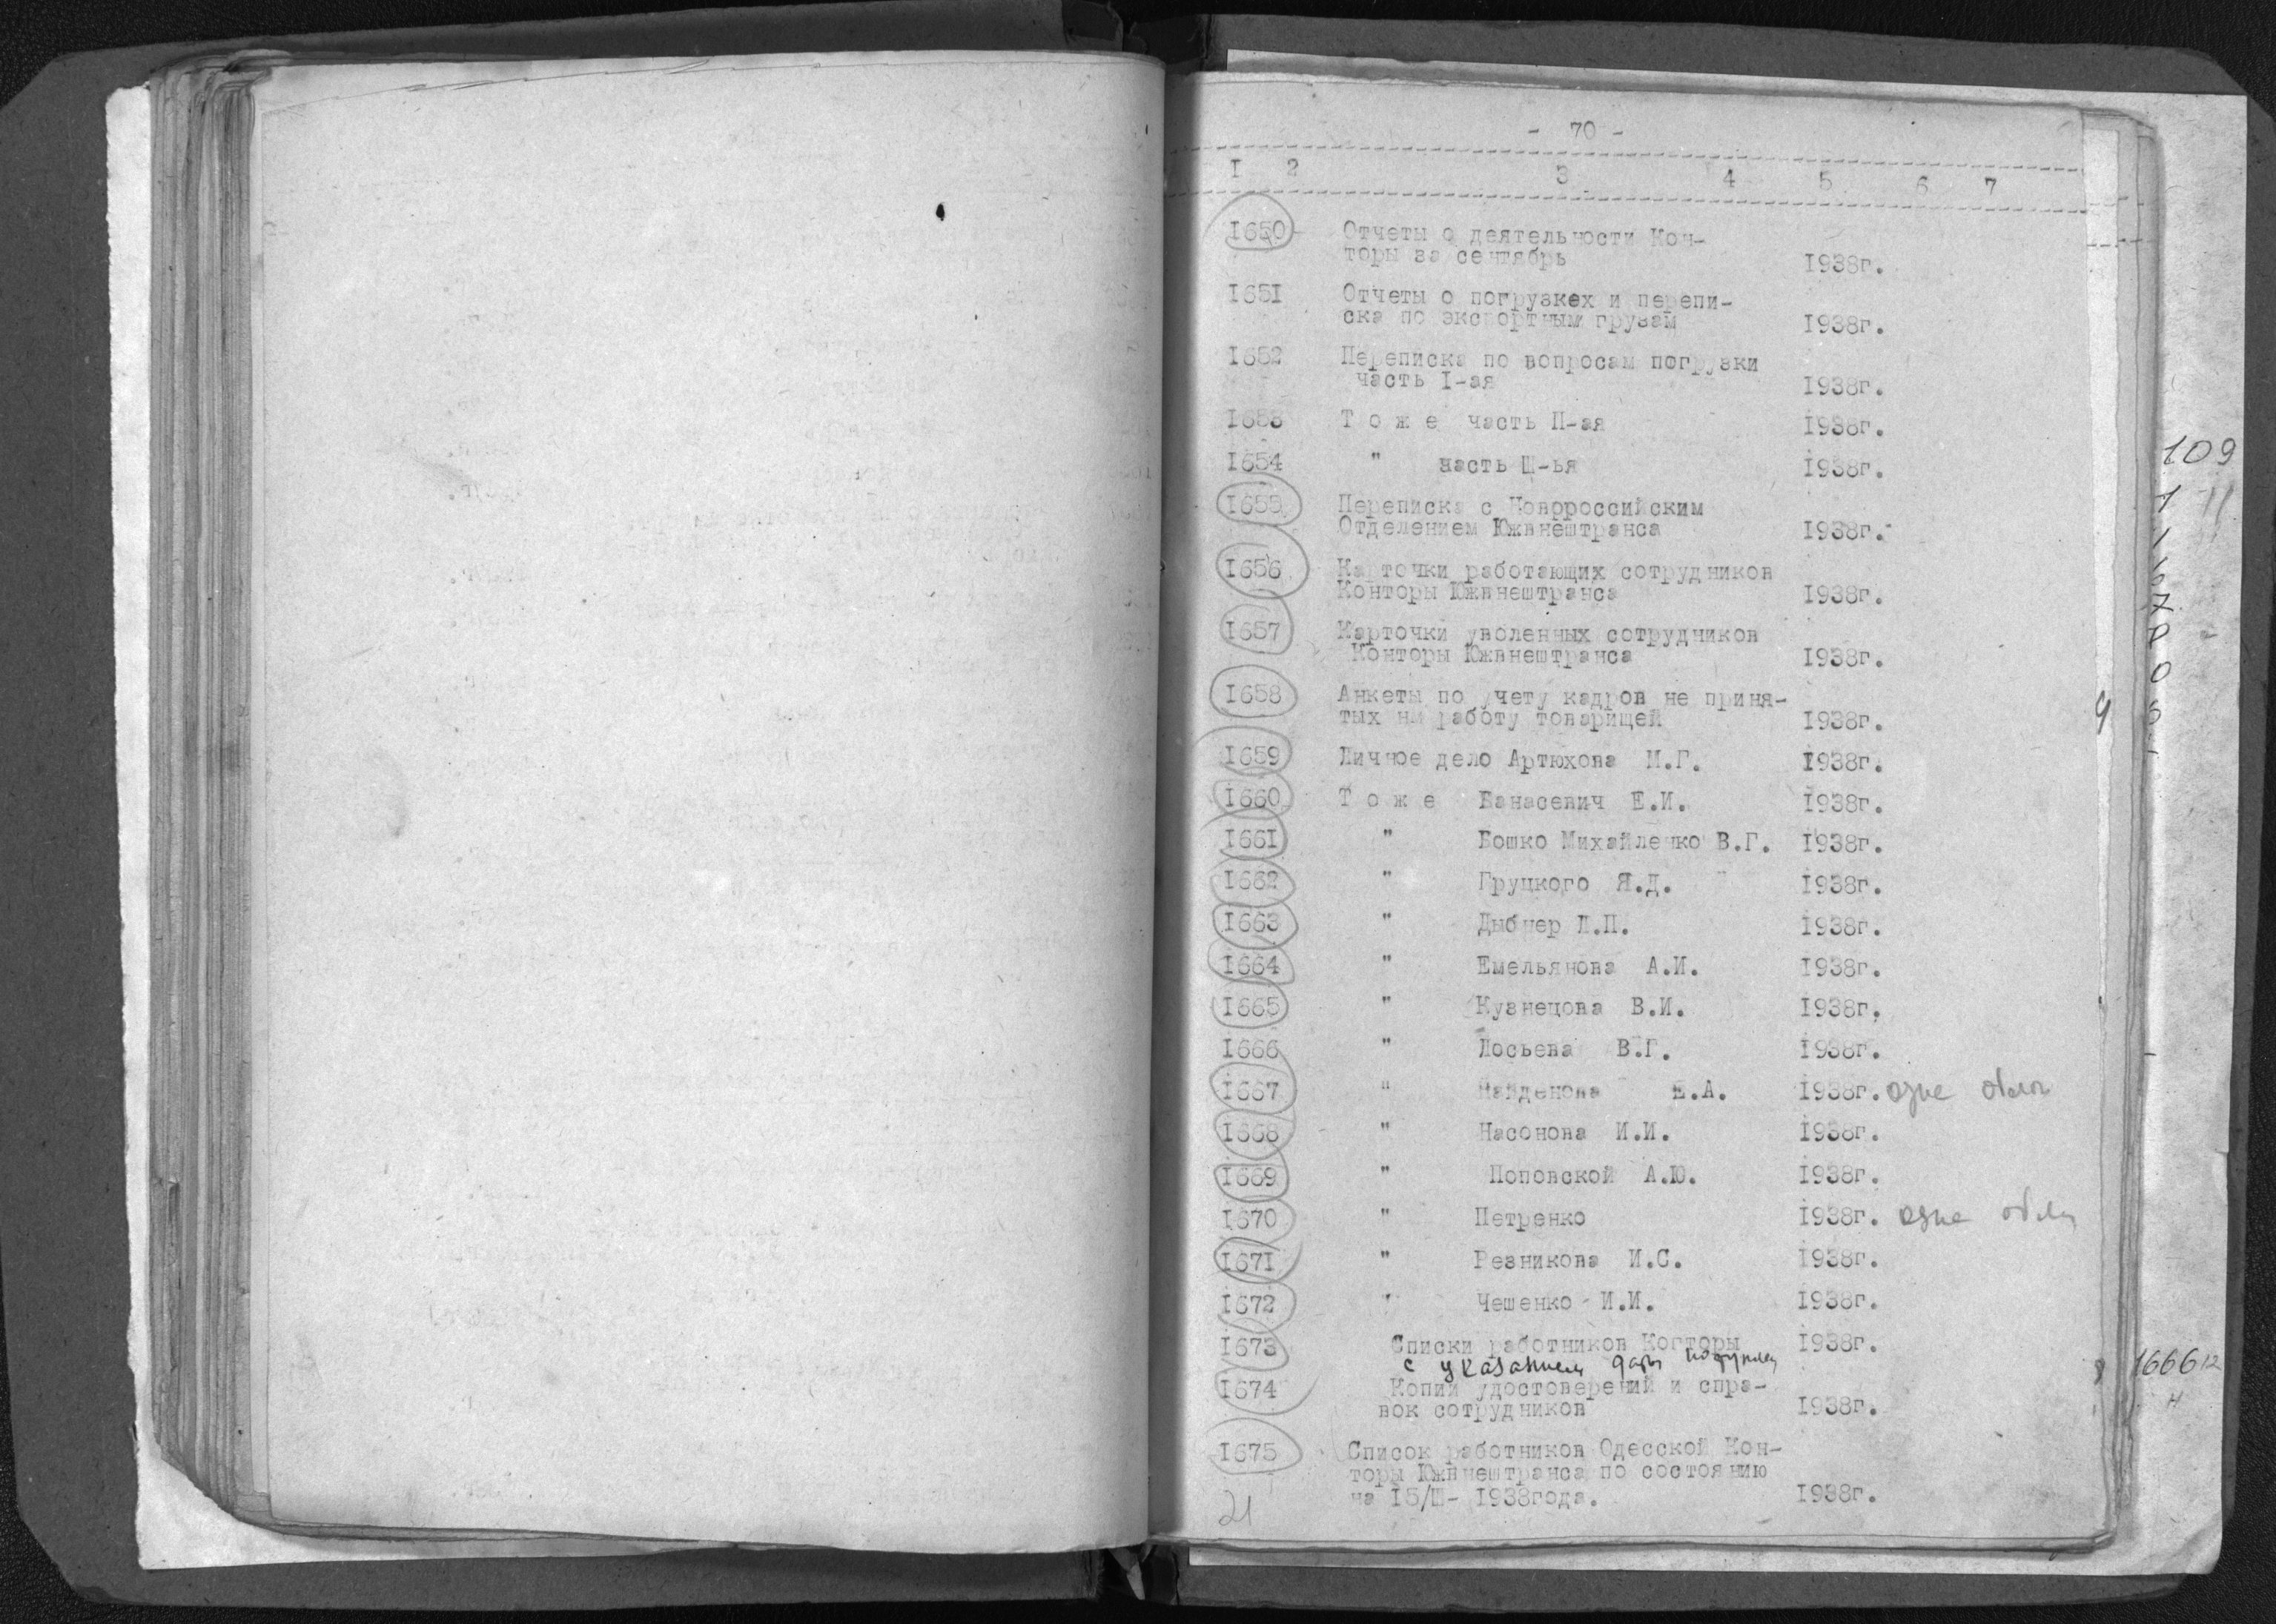 - 70 -
I 2 3 4 5 6 7
I650 Отчеты о деятельности Кон-
торы за сентябрь 1938г.
I651 Отчеты о погрузках и перепи-
ска по экспортным грузам 1938г.
I652 Переписка по вопросам погрузки
часть I-ая 1938г.
I653 Т о ж е часть П-ая 1938г.
I654 " часть Ш-ья 1938г.
I655 Переписка с Новороссийским
Отделением Южвнештранса 1938г.
I656 Карточки работающих сотрудников
Конторы Южвнештранса 1938г.
I657 Карточки уволенных сотрудников
Конторы Южвнештранса 1938г.
I658 Анкеты по учету кадров не приня-
тых на работу товарищей 1938г.
I659 Личное дело Артюхова М.Г. 1938г.
I660 Т о ж е Банасевич Е.И. 1938г.
I661 " Бошко Михайленко В.Г. 1938г.
I662 " Груцкого Я.Д. 1938г.
I663 " Дыбнер Л.П. 1938г.
I664 " Емельянова А.И. 1938г.
I665 " Кузнецова В.И. 1938г.
I666 " Лосьева В.Г. 1938г.
I667 " Найденова Е.А. 1938г.
I668 " Насонова И.И. 1938г.
I669 " Поповской А.Ю. 1938г.
I670 " Петренко 1938г.
I671 " Резникова И.С. 1938г.
I672 " Чешенко И.И. 1938г.
I673 Списки работников Конторы 1938г.
с указанием даты
I674 Копии удостоверений и спра-
вок сотрудников 1938г.
I675 Список работников Одесской Кон-
торы Южвнештранса по состоянию
на I5/Ш- I938года. 1938г.
21
109
1666